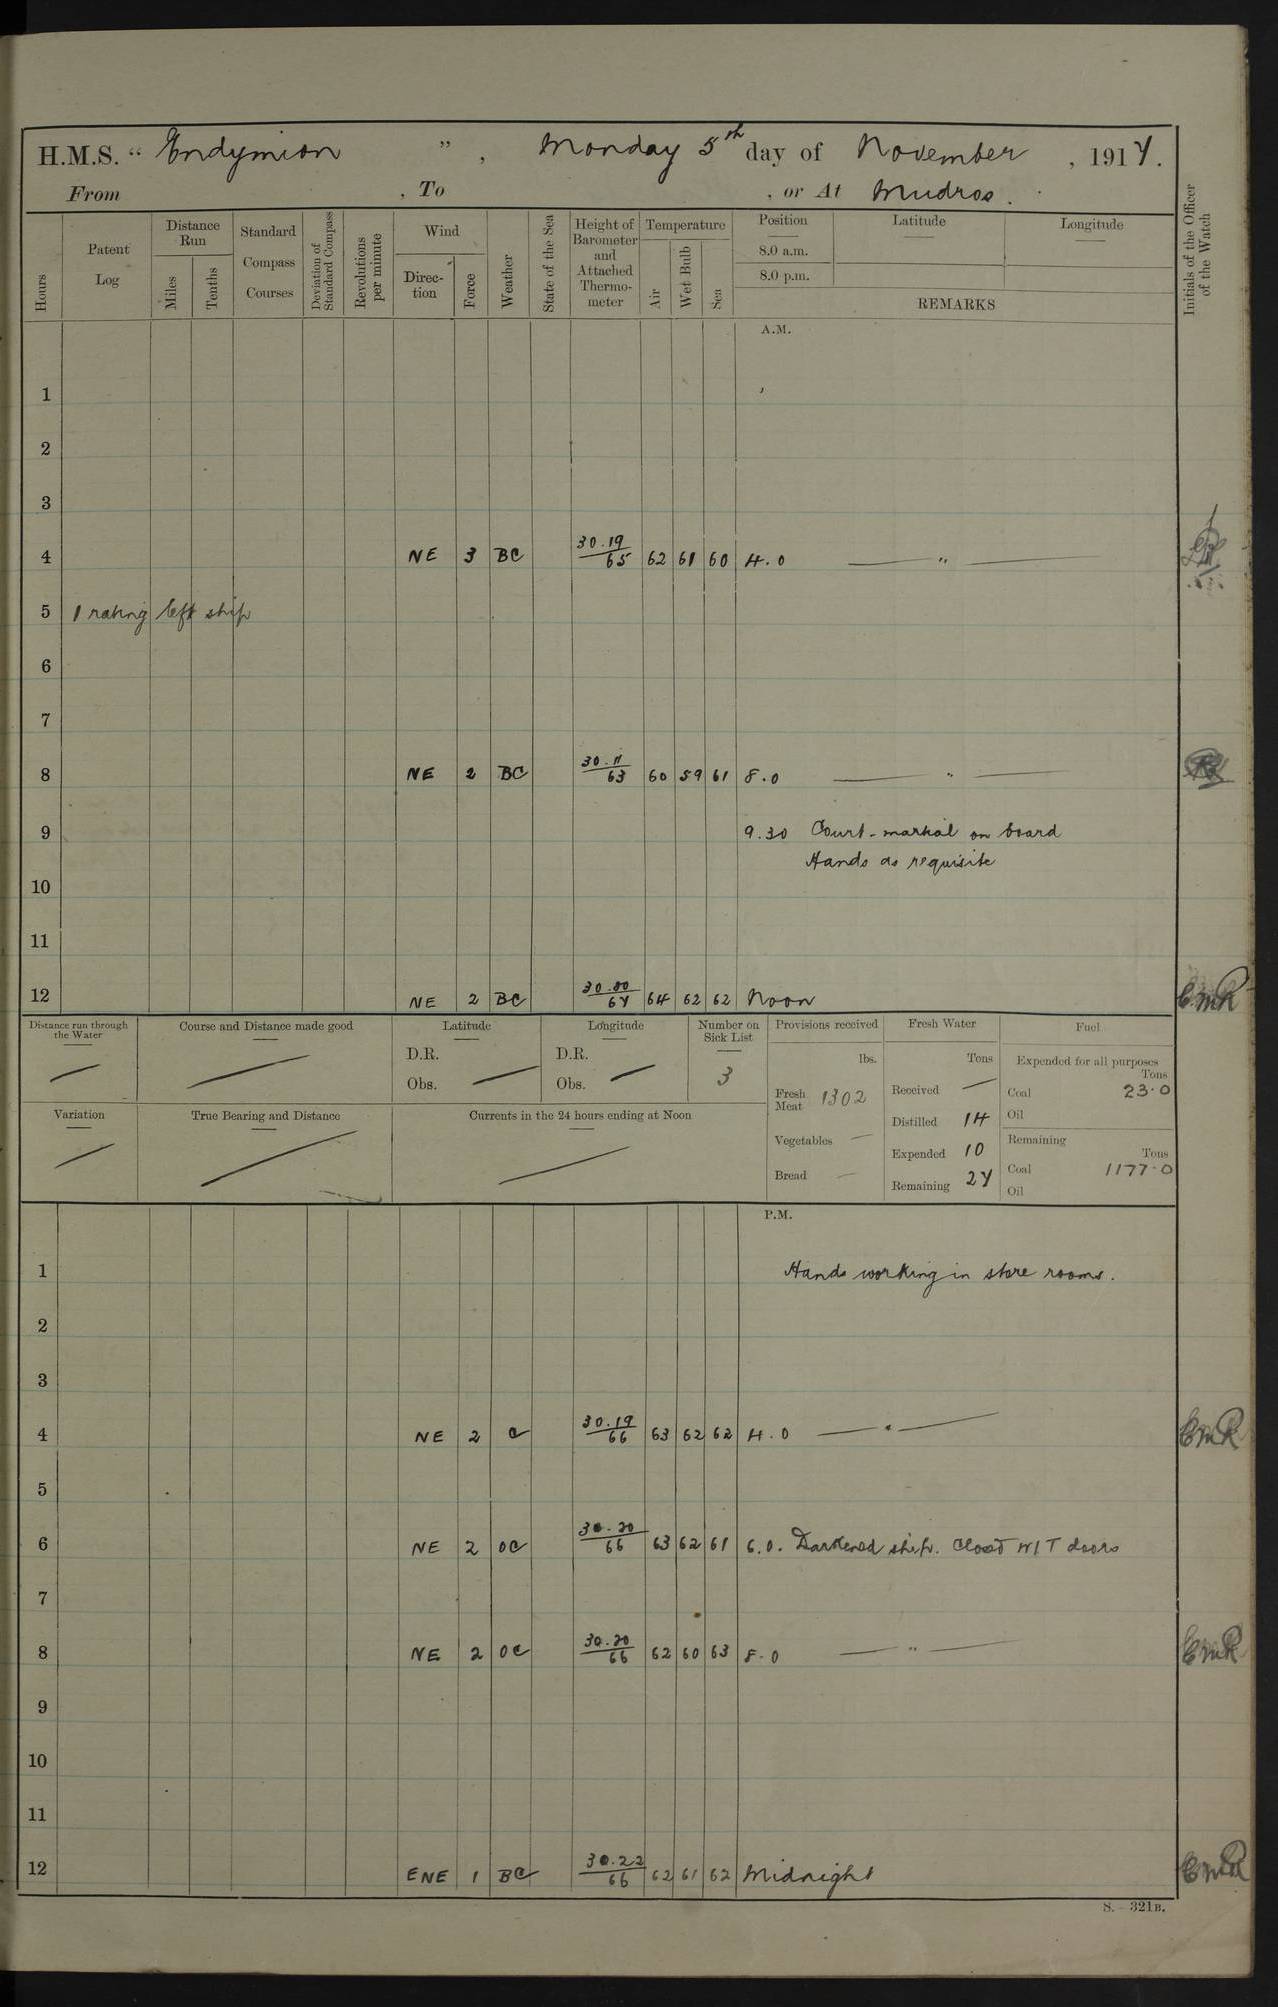 H.M.S. “ Endymion ” , Monday 5th day of November , 1917.
From , To , or At Mudros .
Hours
Patent Log
Distance Run
Miles
Tenths
Standard Compass Courses
Deviation of Standard Compass
Revolutions per minute
Wind
Direc-tion
Force
Weather
State of the Sea
Height of Barometer and Attached Thermo-meter
Temperature
Air
Wet Bulb
Sea
Position
8.0 a.m.
8.0 p.m.
Latitude
Longitude
REMARKS
Initials of the Officer of the Watch
A.M.
1
2
3
4 NE 3 BC 30.19/65 62 61 60 4.0 — " —
5 1 rating left ship
6
7
8 NE 2 BC 30.11/63 60 59 61 8.0 — " —
9 9.30 Court-martial on board
Hands as requisite
10
11
12 NE 2 BC 30.20/67 64 62 62 Noon CMR
Distance run through the Water
Course and Distance made good
Latitude
D.R.
Obs.
Longitude
D.R.
Obs.
Number on Sick List
3
Variation
True Bearing and Distance
Currents in the 24 hours ending at Noon
Provisions received
lbs.
Fresh Meat 1302
Vegetables —
Bread —
Fresh Water
Tons
Received —
Distilled 14
Expended 10
Remaining 27
Fuel
Expended for all purposes
Tons
Coal 23.0
Oil
Remaining
Tons
Coal 1177.0
Oil
P.M.
1 Hands working in store rooms.
2
3
4 NE 2 C 30.19/66 63 62 62 4.0 — " — CMR
5
6 NE 2 OC 30.20/66 63 62 61 6.0. Darkened ship. Closed W/T doors
7
8 NE 2 OC 30.20/66 62 60 63 8.0 — " — CMR
9
10
11
12 ENE 1 BC 30.22/66 62 61 62 Midnight CMR
S. – 321B.